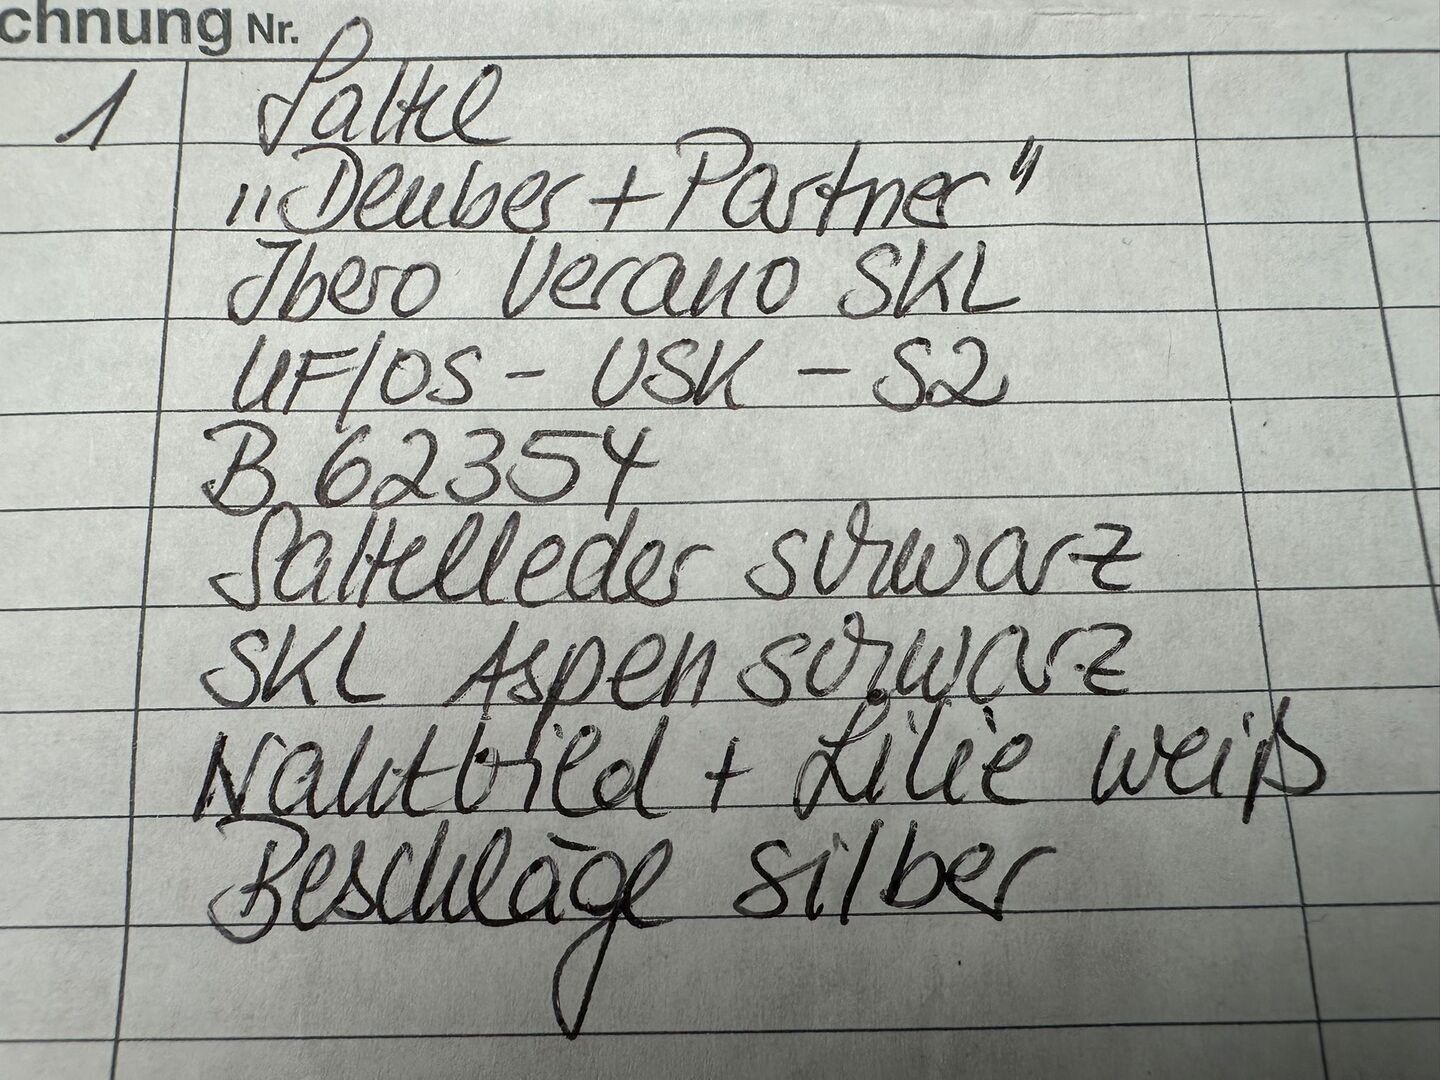 chnung Nr.
1 Sattel
„Deuber + Partner"
Ibero Verano SKL
UF/OS - USK - S2
B 62354
Sattelleder schwarz
SKL Aspen schwarz
Nahtbild + Lilie weiß
Beschläge silber